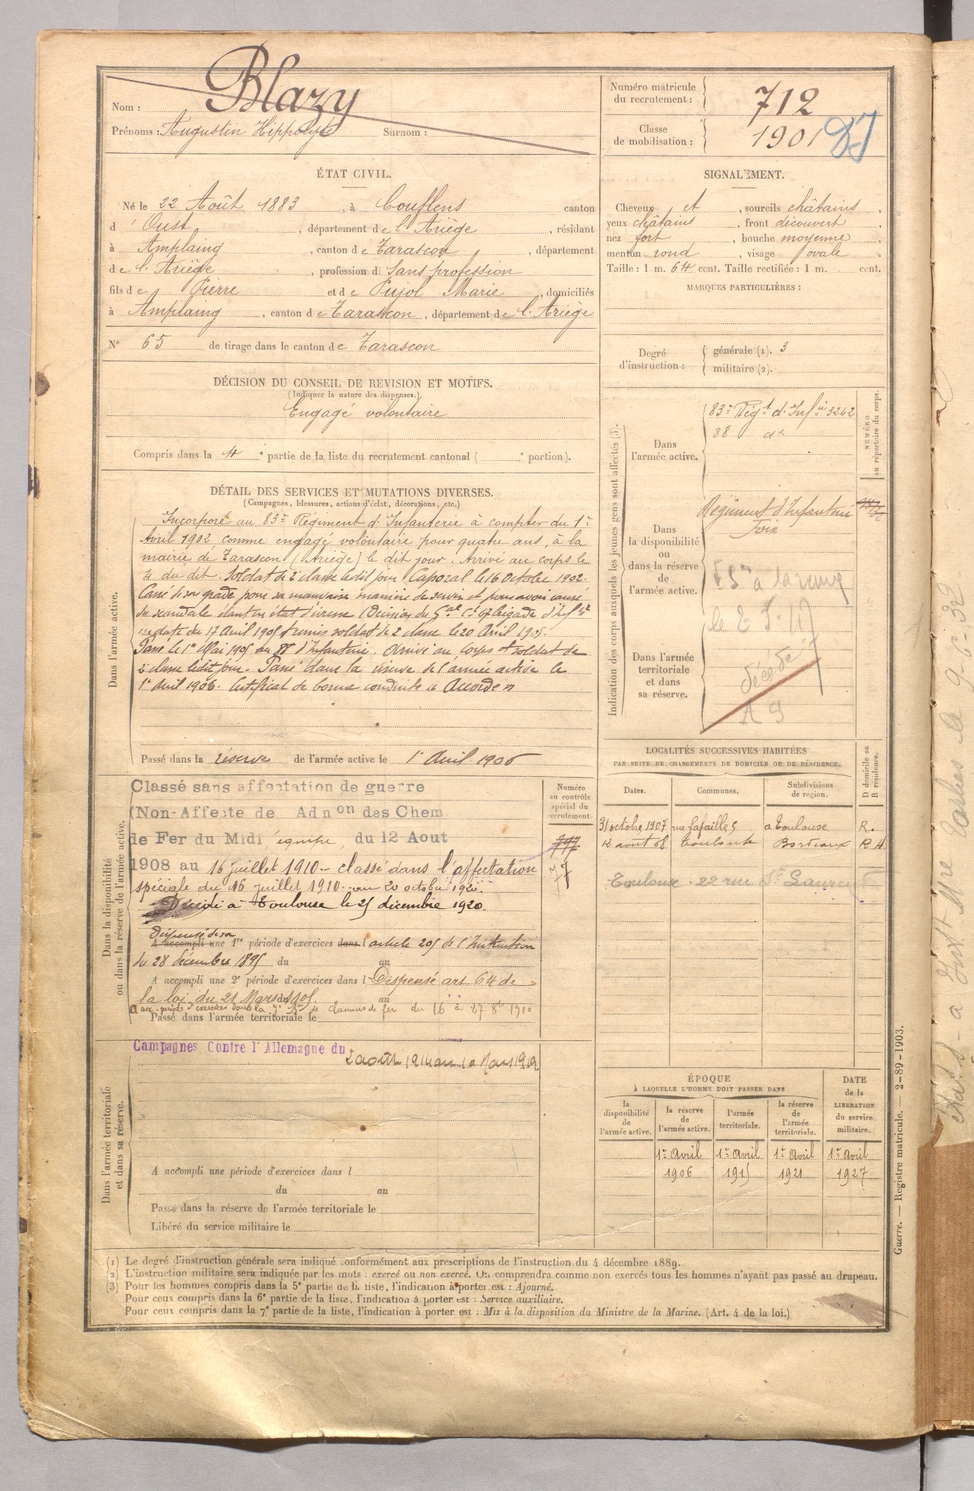 Nom : Blazy
Prénoms : Augustin Hippolyte Surnom :
Numéro matricule du recrutement : 712
Classe de mobilisation : 1901
ÉTAT CIVIL.
Né le 22 Août 1883, à Couflens canton
d'Oust, département de l'Ariège, résidant
à Amplaing, canton de Tarascon, département
de l'Ariège, profession d Sans profession
fils de Pierre et de Pujol Marie, domiciliés
à Amplaing, canton de Tarascon, département de l'Ariège
N° 65 de tirage dans le canton de Tarascon
SIGNALEMENT.
Cheveux et, sourcils châtains,
yeux châtains, front découvert,
nez fort, bouche moyenne,
menton rond, visage ovale.
Taille : 1 m. 64 cent. Taille rectifiée : 1 m. cent.
MARQUES PARTICULIÈRES :
Degré d'instruction : générale (1). 3
militaire (2).
DÉCISION DU CONSEIL DE REVISION ET MOTIFS.
(Indiquer la nature des dispenses.)
Engagé volontaire
Compris dans la 4e partie de la liste du recrutement cantonal ( e portion).
DÉTAIL DES SERVICES ET MUTATIONS DIVERSES.
(Campagnes, blessures, actions d'éclat, décorations, etc.)
Dans l'armée active.
Incorporé au 83e Régiment d'Infanterie à compter du 1er
Avril 1902 comme engagé volontaire pour quatre ans, à la
mairie de Tarascon (Ariège) le dit jour. Arrivé au corps le
4 du dit. Soldat de 2e classe le dit jour. Caporal le 16 Octobre 1902.
Cassé de son grade pour sa mauvaise manière de servir et pour avoir causé
du scandale étant en état d'ivresse (Décision du Gal Ct Brigade d'Infie
en date du 17 Avril 1905) remis soldat de 2e classe le 20 Avril 1905.
Passé le 1er Mai 1905 au 88e d'Infanterie. Arrivé au corps et soldat de
2e classe le dit jour. Passé dans la réserve de l'armée active le
1er Avril 1906. Certificat de bonne conduite "Accordé"
Passé dans la réserve de l'armée active le 1er Avril 1906
Indication des corps auxquels les jeunes gens sont affectés (3).
NUMÉRO au répertoire du corps.
Dans l'armée active.
83e Régt d'Infie 3242
88 do
Dans la disponibilité ou dans la réserve de l'armée active.
Régiment d'Infanterie
Foix
Dans l'armée territoriale et dans sa réserve.
décédé
Dans la disponibilité ou dans la réserve de l'armée active.
Classé sans affectation de guerre
(Non-Affecté de Adnon des Chem
de Fer du Midi équipe, du 12 Aout
1908 au 16 juillet 1910 - classé dans l'affectation
spéciale du 16 juillet 1910 au 20 octobre 1920.
Décédé à Toulouse le 25 décembre 1920.
Numéro au contrôle spécial du recrutement.
dispensé de sa
A accompli une 1re période d'exercices dans l'article 205 de l'Instruction
du 28 décembre 1895 du au
A accompli une 2e période d'exercices dans l Dispensé art 64 de
la loi du 21 Mars 1905 au
du 16 à 27 8bre 1910
Passé dans l'armée territoriale le
LOCALITÉS SUCCESSIVES HABITÉES
PAR SUITE DE CHANGEMENTS DE DOMICILE OU DE RÉSIDENCE.
Dates. Communes. Subdivisions de région. D domicile ou R résidence.
31 octobre 1907 rue Lafailles à Toulouse R.
12 août 08 Toulouse Bordeaux R.A.
Toulouse - 22 rue St Laurent
Dans l'armée territoriale et dans sa réserve.
Campagnes Contre l'Allemagne du 2 août 1914 au 10 Mars 1919
A accompli une période d'exercices dans l
du au
Passé dans la réserve de l'armée territoriale le
Libéré du service militaire le
ÉPOQUE
À LAQUELLE L'HOMME DOIT PASSER DANS
la disponibilité de l'armée active. la réserve de l'armée active. l'armée territoriale. la réserve de l'armée territoriale.
DATE de la LIBÉRATION du service militaire.
1er Avril 1er Avril 1er Avril 1er Avril
1906 1915 1921 1927
(1) Le degré d'instruction générale sera indiqué conformément aux prescriptions de l'instruction du 4 décembre 1889.
(2) L'instruction militaire sera indiquée par les mots : exercé ou non exercé. On comprendra comme non exercés tous les hommes n'ayant pas passé au drapeau.
(3) Pour les hommes compris dans la 5e partie de la liste, l'indication à porter est : Ajourné.
Pour ceux compris dans la 6e partie de la liste, l'indication à porter est : Service auxiliaire.
Pour ceux compris dans la 7e partie de la liste, l'indication à porter est : Mis à la disposition du Ministre de la Marine. (Art. 4 de la loi.)
Guerre. — Registre matricule. — 2-89-1903.